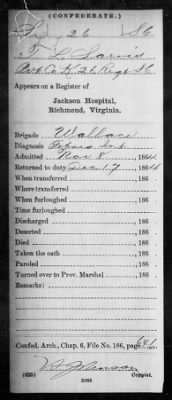 (CONFEDERATE.)
26 S6
Co. K, 26 Regt S6
Appears on a Register of
Jackson Hospital,
Richmond, Virginia.
Brigade Wallace
Diagnosis Febris Int
Admitted Nov 8, 1864.
Returned to duty Dec 17, 1864
Where treated, 186 .
Where transferred, 186 .
When furloughed, 186 .
Time furloughed, 186 .
Discharged, 186 .
Deserted, 186 .
Died, 186 .
Taken by the oath, 186 .
Paroled, 186 .
Turned over to Prov. Marshal, 186 .
Remarks:
Confed. Arch., Chap. 6, File No. 186, page 646
(635)
Copyist.